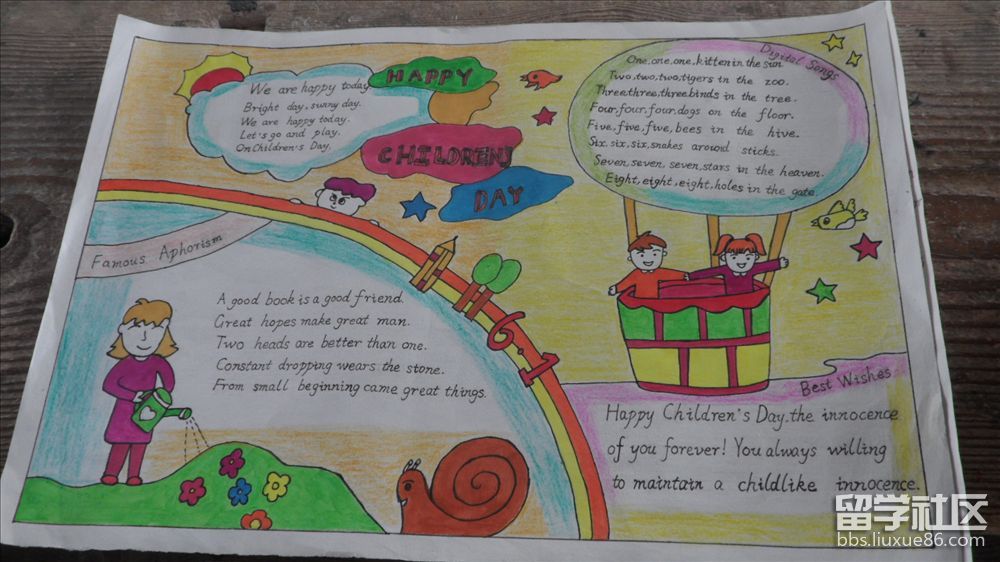 We are happy today
Bright day, sunny day.
We are happy today.
Let's go and play.
On Children's Day.
HAPPY
CHILDREN'S
DAY
Digital Songs
One,one,one,kitten in the sun
Two,two,two,tigers in the zoo.
Three,three,three,binds in the tree.
Four,four,four,dogs on the floor.
Five,five,five,bees in the hive.
Six,six,six,snakes around sticks.
Seven,seven,seven,stars in the heaven.
Eight,eight,eight,holes in the gate
Famous Aphorism
A good book is a good friend.
Great hopes make great man.
Two heads are better than one.
Constant dropping wears the stone.
From small beginning came great things.
6.1
Best Wishes
Happy Children's Day.the innocence
of you forever! You always willing
to maintain a childlike innocence.
留学社区
bbs.liuxue86.com